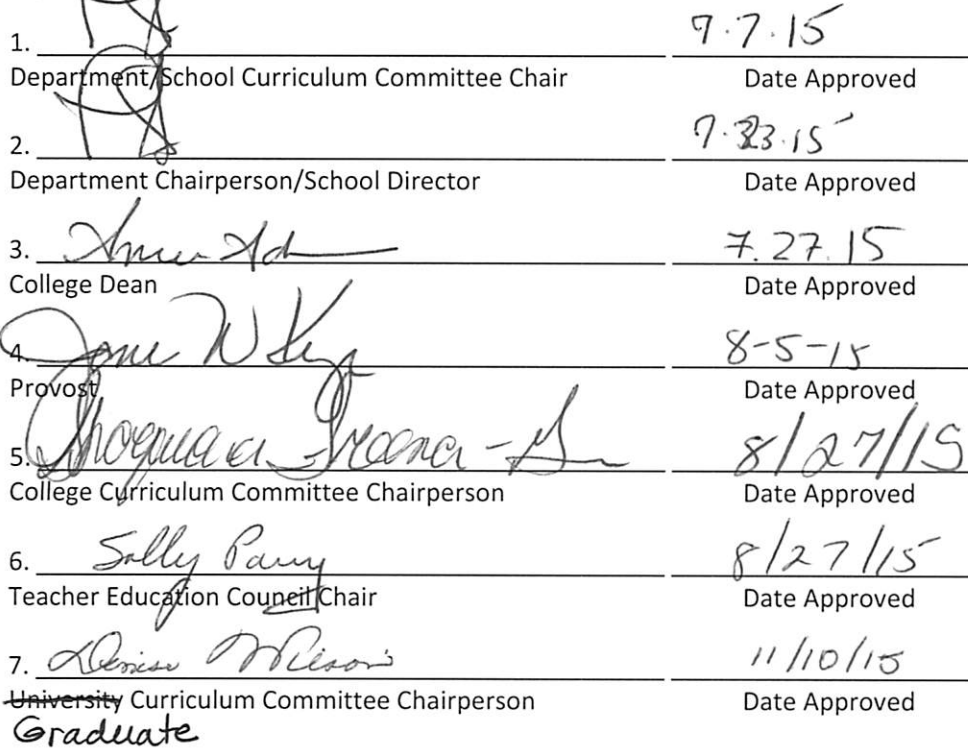 1. 7.7.15
Department/School Curriculum Committee Chair Date Approved
2. 15
Department Chairperson/School Director Date Approved
3. 7.27.15
College Dean Date Approved
4. 8-5-15
Provost Date Approved
5. 8/27/15
College Curriculum Committee Chairperson Date Approved
6. Sally Parry 8/27/15
Teacher Education Council Chair Date Approved
7. Denise Wilson 11/10/15
University Curriculum Committee Chairperson Date Approved
Graduate